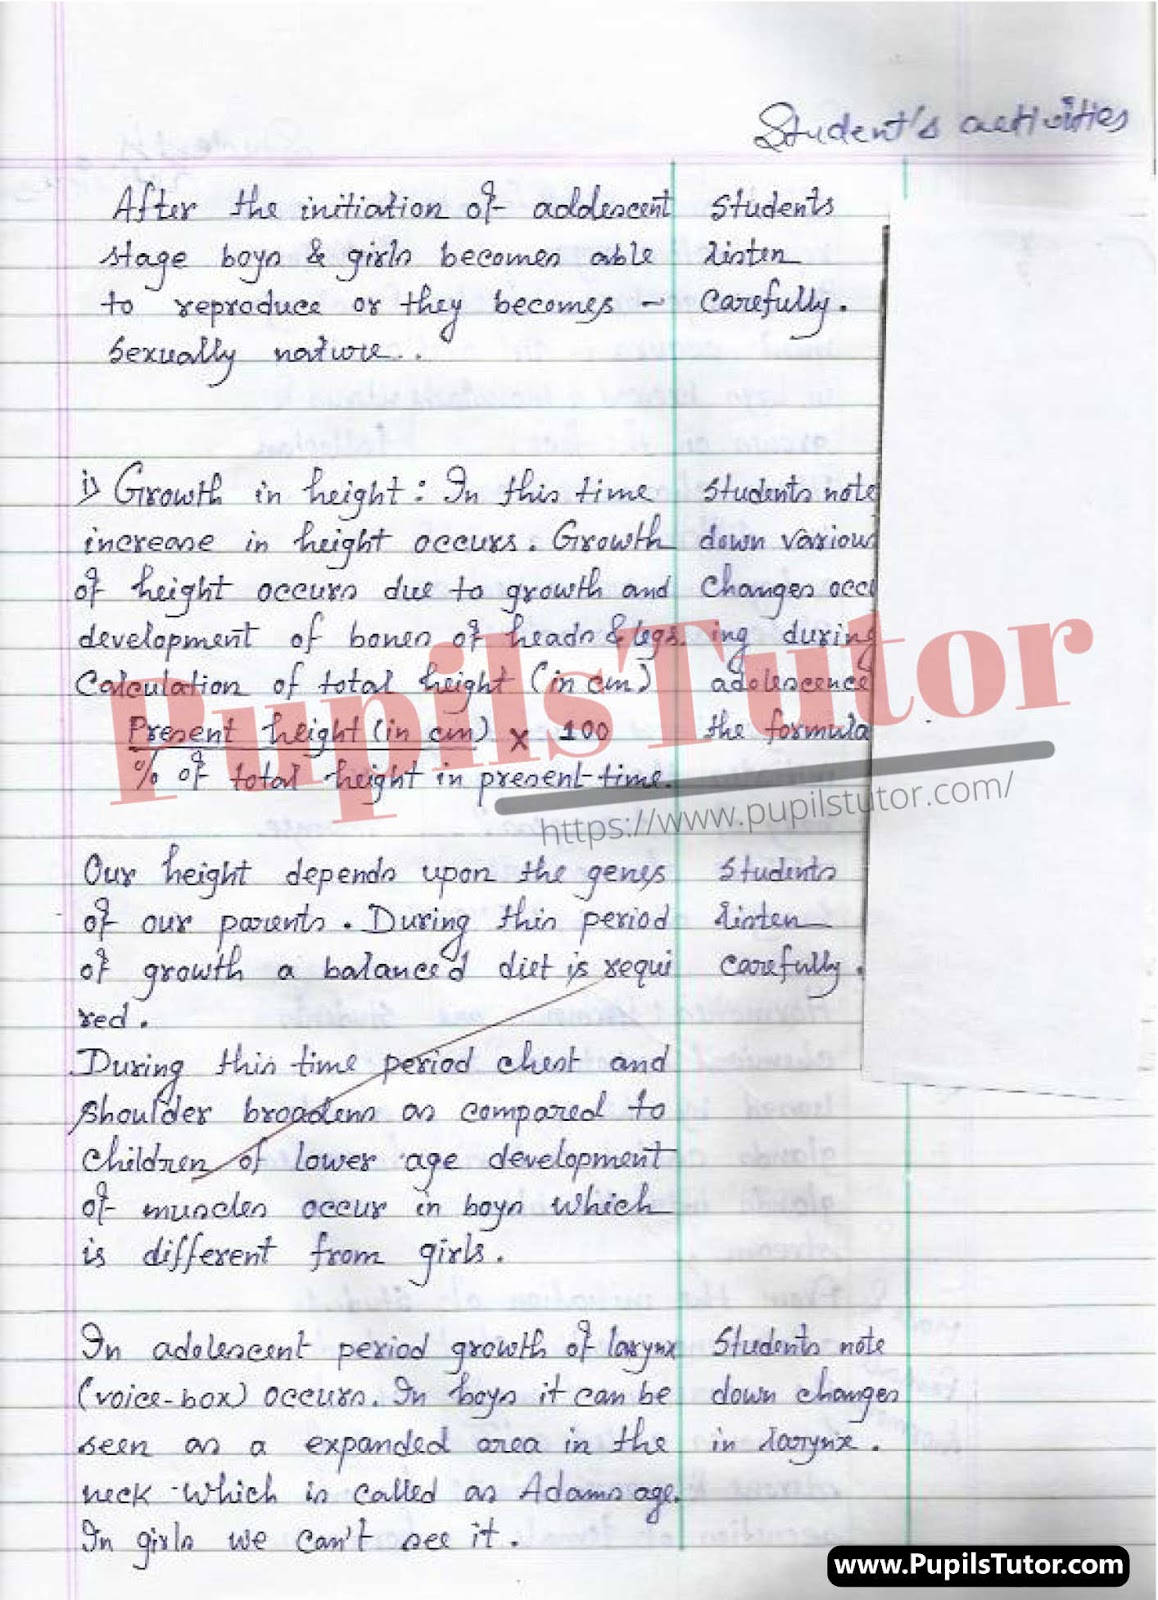 Student's activities
After the initiation of addescent
stage boys & girls becomes able
to reproduce or they becomes -
sexually nature..
Students
listen
carefully.
i) Growth in height : In this time
increase in height occurs. Growth
of height occurs due to growth and
development of bones of heads & legs.
Calculation of total height (in cm)
Present height (in cm) x 100
% of total height in present time.
Students note
down various
changes occ
ing during
adolescence
the formula
PupilsTutor
https://www.pupilstutor.com/
Our height depends upon the genes
of our parents. During this period
of growth a balanced diet is requi
red.
Students
listen
carefully.
During this time period chest and
shoulder broadens as compared to
children of lower age development
of muscles occur in boys which
is different from girls.
In adolescent period growth of larynx
(voice-box) occurs. In boys it can be
seen as a expanded area in the
neck which is called as Adams age.
In girls we can't see it.
Students note
down changes
in larynx.
www.PupilsTutor.com